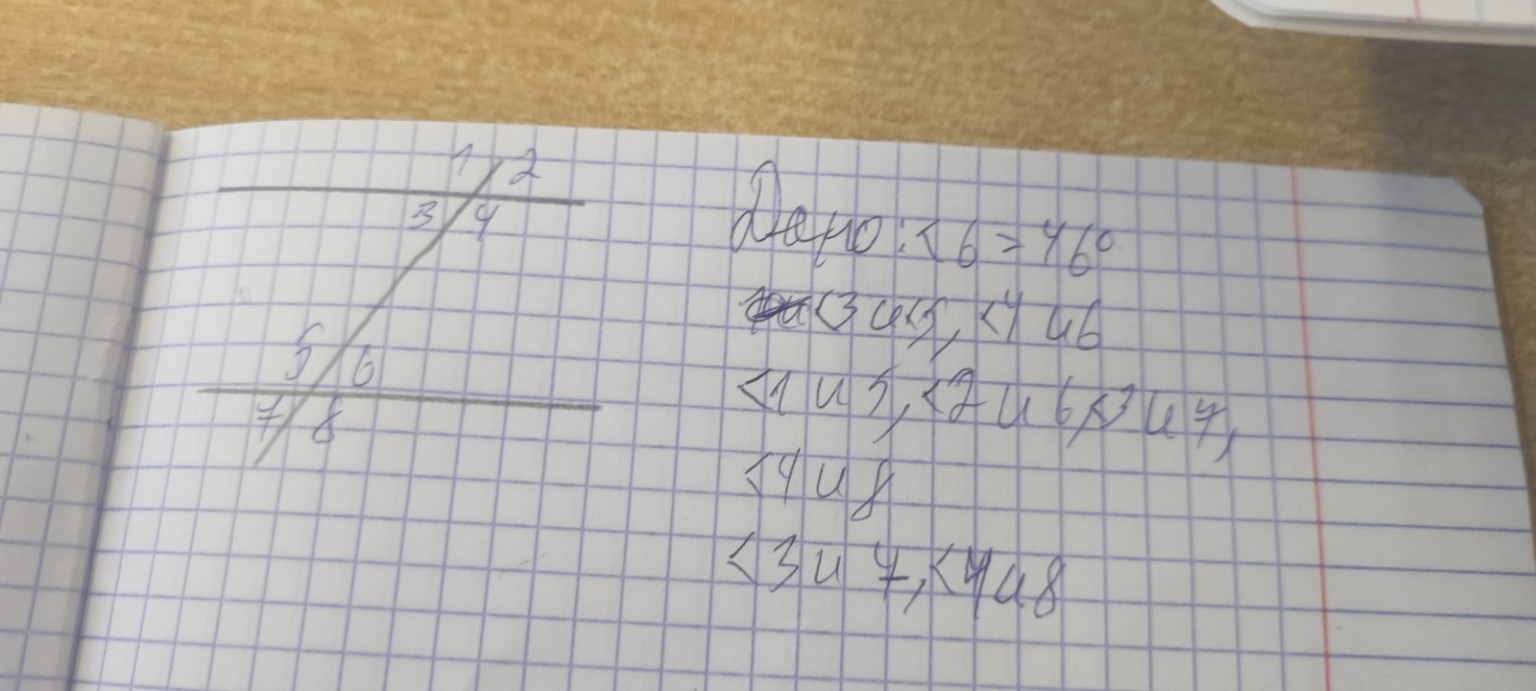 1 2
3 4
5 6
7 8
Дано: <6 = 46°
<3 и <5, <4 и 6
<1 и 5, <2 и 6, <3 и 7,
<4 и 8
<3 и 7, <4 и 8